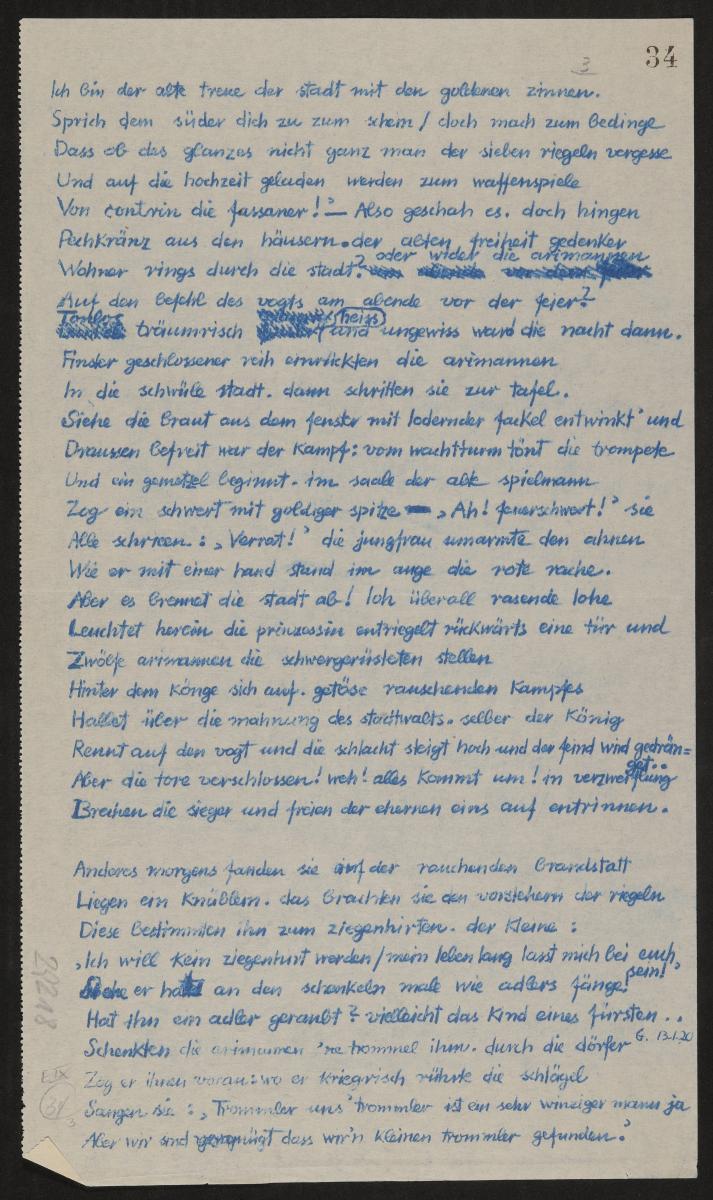 34
3
Ich bin der alte treue der stadt mit den goldenen zinnen.
Sprich dem süder dich zu zum schein / doch mach zum bedinge
Dass ob des glanzes nicht ganz man der sieben riegeln vergesse
Und auf die hochzeit geladen werden zum waffenspiele
Von contrin die fassaner!' — Also geschah es. doch hingen
Pechkränz aus den häusern. der alten freiheit gedenker
oder wider die arimannen
Wohner rings durch die stadt?
Auf den befehl des vogts am abende vor der feier?
Tonlos träumrisch heiss und ungewiss ward die nacht dann.
Finster geschlossener reih einrückten die arimannen
In die schwüle stadt. dann schritten sie zur tafel.
Siehe die braut aus dem fenster mit lodernder fackel entwinkt' und
Draussen befreit war der kampf: vom wachtturm tönt die trompete
Und ein gemetzel beginnt. im saale der alte spielmann
Zog ein schwert mit goldiger spitze — ‚Ah! feuerschwert!' sie
Alle schrieen: ‚Verrat!' die jungfrau umarmte den ahnen
Wie er mit einer hand stund im auge die rote rache.
Aber es brennet die stadt ab! Loh überall rasende lohe
Leuchtet herein die prinzessin entriegelt rückwärts eine tür und
Zwölfe arimannen die schwergerüsteten stellen
Hinter dem könge sich auf. getöse rauschenden kampfes
Hallet über die mahnung des stadtwalts. selber der könig
Rennt auf den vogt und die schlacht steigt hoch und der feind wird gedrän=
get..
Aber die tore verschlossen! weh! alles kommt um! in verzweiflung
Brechen die sieger und freien der ehernen eins auf entrinnen.
Anderes morgens fanden sie auf der rauchenden brandstatt
Liegen ein knäblein. das brachten sie den vorstehern der riegeln
Diese bestimmten ihn zum ziegenhirten. der kleine:
‚Ich will kein ziegenhirt werden / mein leben lang lasst mich bei euch
sein!'
Siehe er hat an den schenkeln male wie adlers fänge!
Hat ihn ein adler geraubt? vielleicht das kind eines fürsten..
Schenkten die arimannen 'ne trommel ihm. durch die dörfer
G. 13.1.20
Zog er ihnen voran: wo er kriegrisch rührte die schlägel
Sangen sie: ‚Trommler uns' trommler ist ein sehr winziger mann ja
Aber wir sind vergnügt dass wir'n kleinen trommler gefunden.'